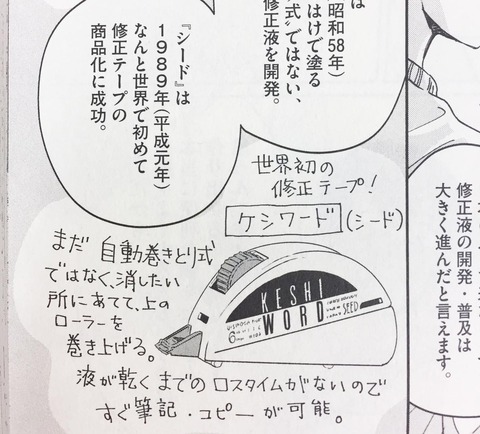 は
昭和58年)
はけで塗る
式”ではない、
修正液を開発。
『シード』は
1989年(平成元年)
なんと世界で初めて
修正テープの
商品化に成功。
修正液の開発・普及は
大きく進んだと言えます。
世界初の
修正テープ!
ケシワード(シード)
まだ 自動巻きとり式
ではなく、消したい
所にあてて、上の
ローラーを
巻き上げる。
KESHI
WORD
SEED
液が乾くまでのロスタイムがないので
すぐ筆記・コピーが可能。